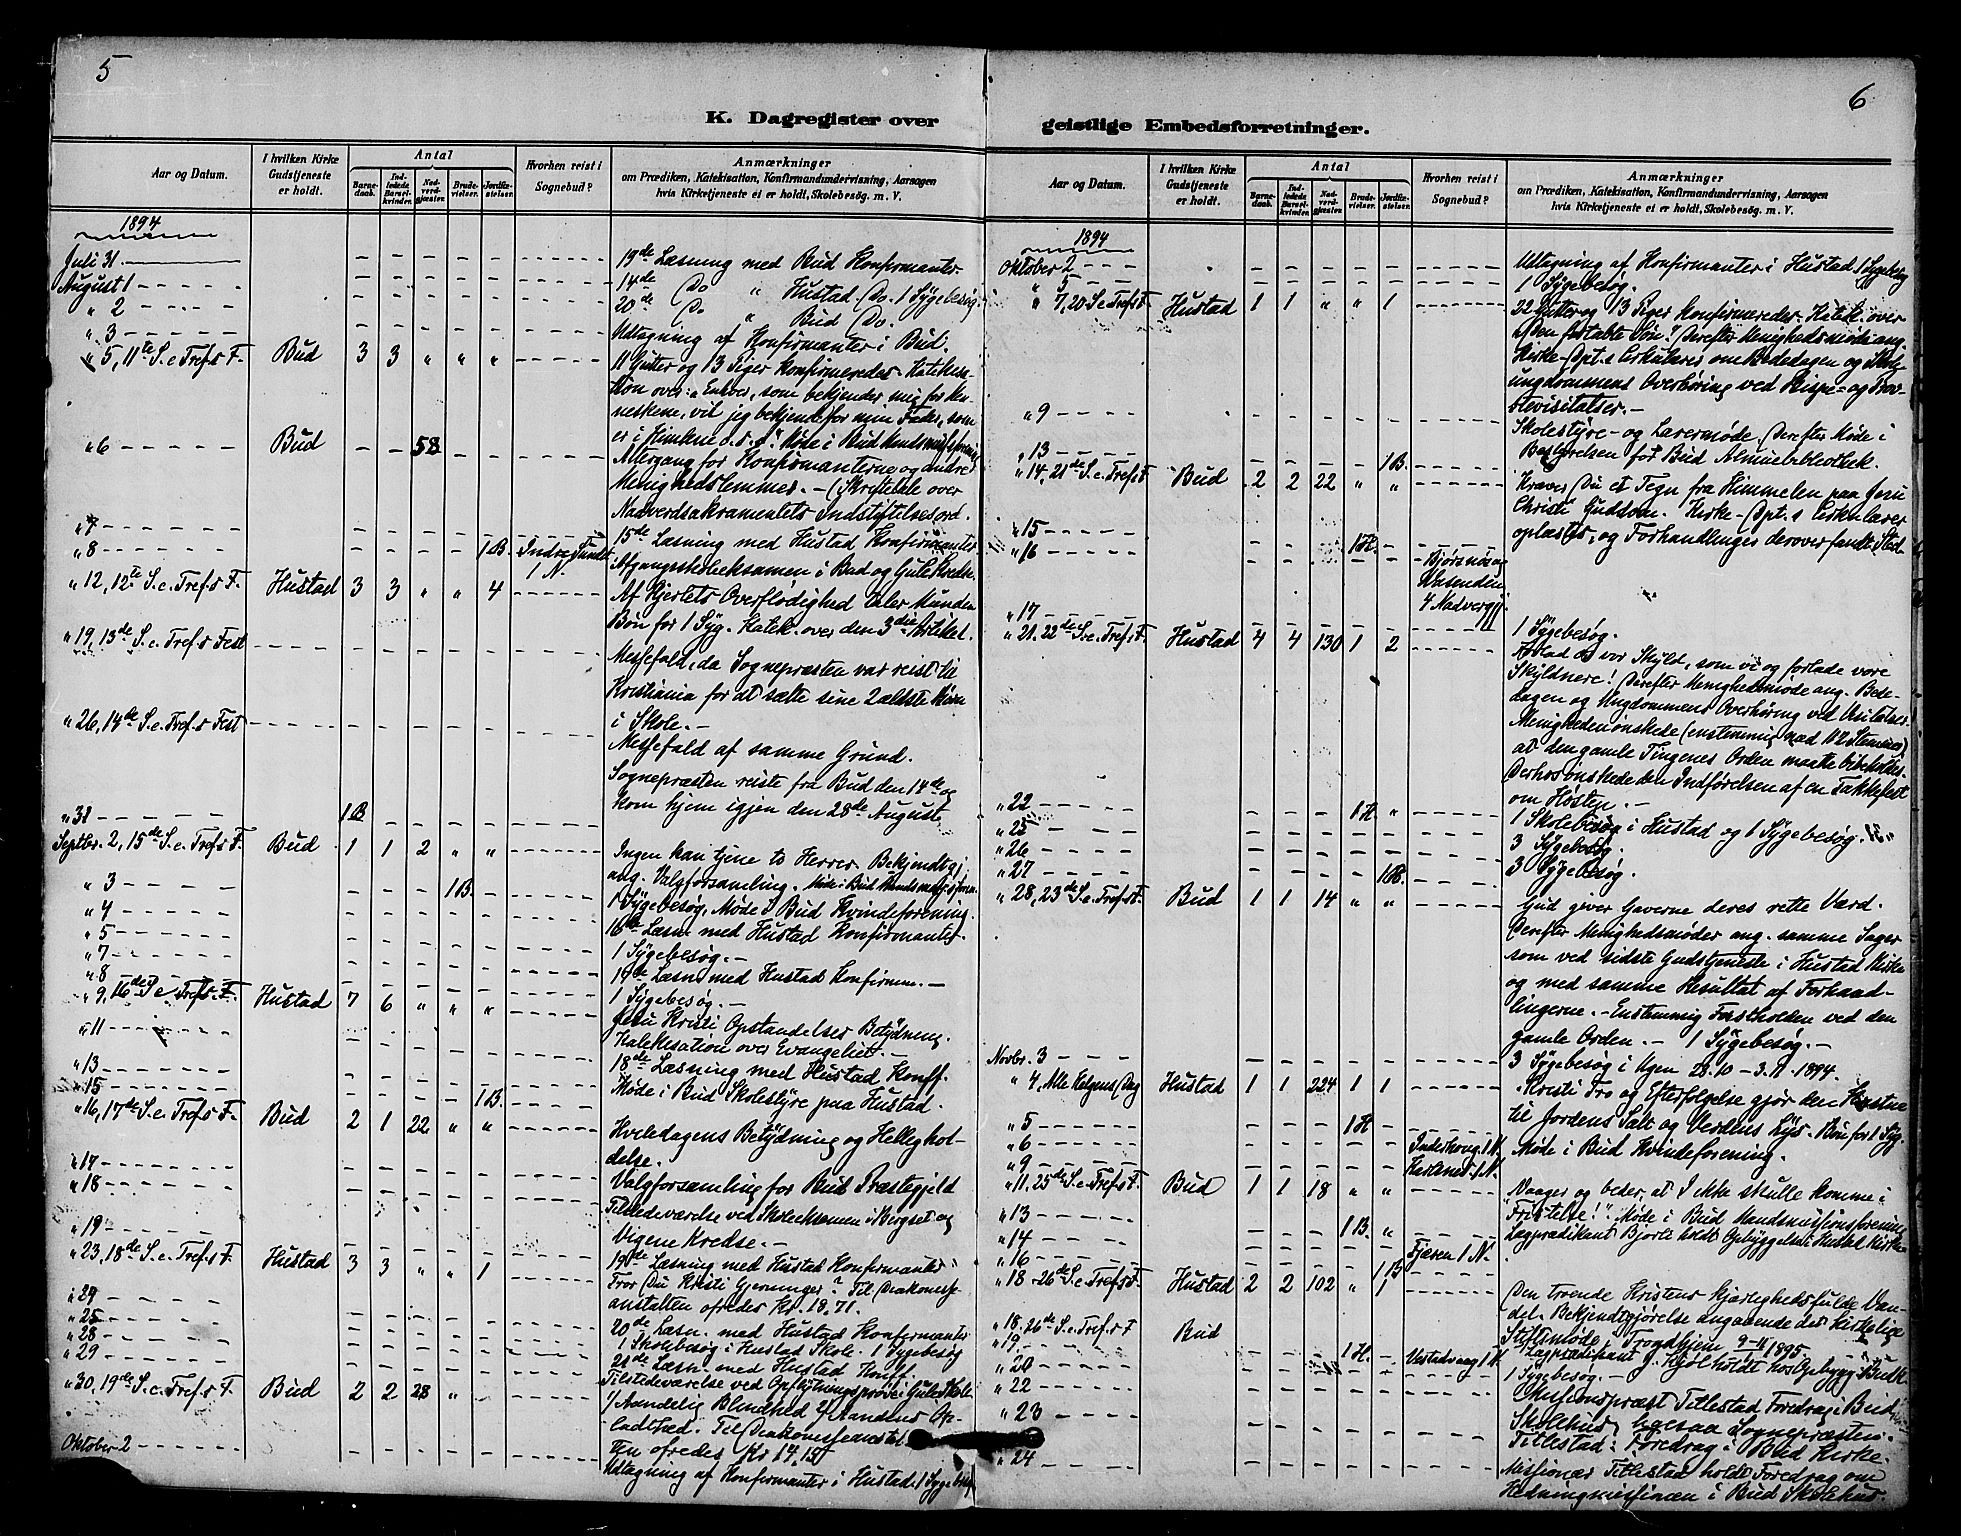 5
K. Dagregister over
Aar og Datum.
I hvilken Kirke Gudstjeneste er holdt.
Antal
Barnedaab.
Indledede Barselkvinder.
Nadverdgjæster.
Brudevielser.
Jordfæstelser.
Hvorhen reist i Sognebud?
Anmærkninger
om Prædiken, Katekisation, Konfirmandundervisning, Aarsagen
hvis Kirketjeneste ei er holdt, Skolebesøg. m. V.
1894
Juli 31. - - - - - - 19de Læsning med Bud Konfirmanter.
August 1 - - - - - - 14de Do " Hustad Do. 1 Sygebesøg.
" 2 - - - - - - 20de Do " Bud Do.
" 3 - - - - - - Udtagning af Konfirmanter i Bud.
" 5, 11te S. e Tref.s F. Bud 3 3 " " " 11 Gutter og 13 Piger konfirmeredes. Katekisa-
tion over: "Enhver, som bekjender mig for Men-
neskene, vil jeg bekjende for min Fader, som
er i Himlene o.s.v." Møde i Bud Mandsmissjonsforening
" 6 - - - Bud - - 58 - - Altergang for Konfirmanterne og andre
Menighedslemmer. - (Skriftetale over
Nadverdsakramentets Indstiftelsesord.
" 7 - - - - - - 15de Læsning med Hustad Konfirmanter
" 8 - - - - - 1 B. Indre Tundt 1 N. Afgangsskoleeksamen i Bud og Gule Kredse.
" 12, 12te S. e. Tref.s F. Hustad 3 3 " " 4 Af Hjertets Overflødighed taler Munden
Bøn for 1 Syg. Katek. over den 3die Artikel.
" 19, 13de S. e. Tref.s Fest - - - Messefald, da Sognepræsten var reist til
Kristiania for at sætte sine 2 ældste Børn
i Skole. -
" 26, 14de S. e. Tref.s Fest - - - Messefald af samme Grund.
Sognepræsten reiste fra Bud den 14de og
kom hjem igjen den 28de August.
" 31 - - - 1 B - - - -
Septbr. 2, 15de S. e. Tref.s F. Bud 1 1 2 " " Ingen kan tjene to Herrer. Bekjendtgj.
ang. Valgforsamling. Møde i Bud Mandsmissjonsforen.
" 3 - - - - - - 1 B. - 1 Sygebesøg, Møde i Bud Kvindeforening.
" 4 - - - - - - 16de Læsn. med Hustad Konfirmanter.
" 5 - - - - - - 1 Sygebesøg. -
" 7 - - - - - - 17de Læsn. med Hustad Konfirm. -
" 8 - - - - - - 1 Sygebesøg. -
" 9, 16de S e Tref.s F. Hustad 7 6 " " " Jesu Kristi Opstandelses Betydning.
Katekisation over Evangeliet. -
" 11 - - - - - - 18de Læsning med Hustad Konff.
" 13 - - - - - - Møde i Bud Skolestyre paa Hustad.
" 15 - - - - - 1 B.
" 16, 17de S. e. Tref.s F. Bud 2 1 22 " " Hviledagens Betydning og Helleghol-
delse.
" 17 - - - - - - Valgforsamling for Bud Præstegjeld
" 18 - - - - - - Tilstedeværelse ved Skoleeksamen i Bergset og
Vigene Kredse. -
" 19 - - - - - - 19de Læsning med Hustad Konfirmanter
" 23, 18de S. e. Tref.s F. Hustad 3 3 " " 1 Tror Du Kristi Gjerninger? Til Diakonisse-
anstalten ofredes Kr. 18,71.
" 29 - - - - - - 20de Læsn. med Hustad Konfirmanter
" 25 - - - - - - 1 Skolebesøg i Hustad Skole. 1 Sygebesøg
" 28 - - - - - - 21de Læsn. med Hustad Konff.
" 29 - - - - - - Tilstedeværelse ved Opflytningsprøve i Gule Skole.
" 30, 19de S. e Tref.s F. Bud 2 2 28 " - 1/ Aandelig Blindhed 2/ Aandens Op-
ladthed. Til Diakonisseanstal-
ten ofredes Kr 14,15
Oktober 2 - - - - - - Udtagning af Konfirmanter i Hustad. 1 Sygebesøg
6
geistlige Embedsforretninger.
Aar og Datum.
I hvilken Kirke Gudstjeneste er holdt.
Antal
Barnedaab.
Indledede Barselkvinder.
Nadverdgjæster.
Brudevielser.
Jordfæstelser.
Hvorhen reist i Sognebud?
Anmærkninger
om Prædiken, Katekisation, Konfirmandundervisning, Aarsagen
hvis Kirketjeneste ei er holdt, Skolebesøg. m. V.
1894
Oktober 2 - - - - - - Udtagning af Konfirmanter i Hustad 1 Sygebesøg
" 5 - - - - - - 1 Sygebesøg.
" 7, 20 S. e Tref.s F. Hustad 1 1 " " 1 22 Gutter og 13 Piger konfirmeredes. Katek. over
"Den fortabte Søn." Derefter Menighedsmøde ang.
Kirke-Dpt.s Cirkulære om Bededagen og Skole
ungdommens Overhøring ved Bispe- og Prov-
stevisitatser. -
" 9 - - - - - - Skolestyre- og Lærermøde. Derefter Møde i
Bestyrelsen for Bud Almuebibliothek.
" 13 - - - - - 1 B.
" 14, 21de S. e. Tref.s F. Bud 2 2 22 " " Kræver Du et Tegn fra Himmelen paa Jesu
Christi Guddom. Kirke-Dpt.s Cirkulærer
oplæstes, og Forhandlinger derover fandt Sted.
" 15 - - - - 1 H. -
" 16 - - - - - - Bjørsnøs og Vasenden 4 Nadvergj.
" 17 - - - - - - 1 Sygebesøg.
" 21. 22de S. e. Tref.s F. Hustad 4 4 130 1 2 Forlad os vor Skyld, som vi og forlade vore
Skyldnere! Derefter Menighedsmøde ang. Bede-
dagen og Ungdommens Overhøring ved Visitatser.
Menigheden ønskede (enstemmig med 112 Stemmer)
at den gamle Tingenes Orden maatte bibeholdes.
Derhos ønskede den Indførelsen af en Takkefest
om Høsten. -
" 22 - - - - 1 H. " 1 Skolebesøg i Hustad og 1 Sygebesøg.
" 25 - - - - - - 3 Sygebesøg.
" 26 - - - - - - 3 Sygebesøg.
" 27 - - - - - 1 B.
" 28, 23de S. e. Tref.s F. Bud 1 1 14 " " Gud giver Gaverne deres rette Værd.
Derefter Menighedsmøder ang. samme Sager
som ved sidste Gudstjeneste i Hustad Kirke
og med samme Resultat af Forhand-
lingerne. - Enstemmig Fastholden ved den
gamle Orden. - 1 Sygebesøg. -
Novbr. 3 - - - - - - 3 Sygebesøg i Ugen 28.10 - 3.11. 1894.
" 4, Alle Helgens Dag Hustad 1 1 224 1 1 Kristi Tro og Efterfølgelse gjør den Kristne
til Jordens Salt og Verdens Lys. Bøn for 1 Syg.
" 5 - - - - 1 H - Møde i Bud Kvindeforening.
" 6 - - - - - - Inderhaug 1 N.
" 9 - - - - - - 1 N.
" 11, 25de S. e. Tref.s F. Bud 1 1 18 " " Vaager og beder, at I ikke skulle komme i
Fristelse!" Møde i Bud Mandsmissjonsforening
" 13 - - - - 1 B. " Lægprædikant Bjorli holdt Opbyggelse i Hustad Kirke.
" 14 - - - - - -
" 16 - - - - - 1 B Fjæren 1 N.
" 18 26de S. e. Tref.s F. Hustad 2 2 102 " 1 Den troende Kristens kjærlighedsfulde Van-
del. Bekjendtgjørelse angaaende det kirkelige
Stiftsmøde i Trondhjem 9-11 1895.
" 18. 26de S. e. Tref.s F Bud
" 19 - - - - 1 H. - Vestadvaag 1 N.
" 20 - - - - - - 1 Sygebesøg. -
" 22 - - - - - - Missionspræst Titlestad Foredrag i Bud
Skolehus, ligesaa Sognepræsten.
" 23 - - - - - - Titlestad: Foredrag i Bud Kirke.
" 24 - - - - - - Missionær Titlestad holdt Foredrag om
Hedningmissionen i Bud Skolehus.